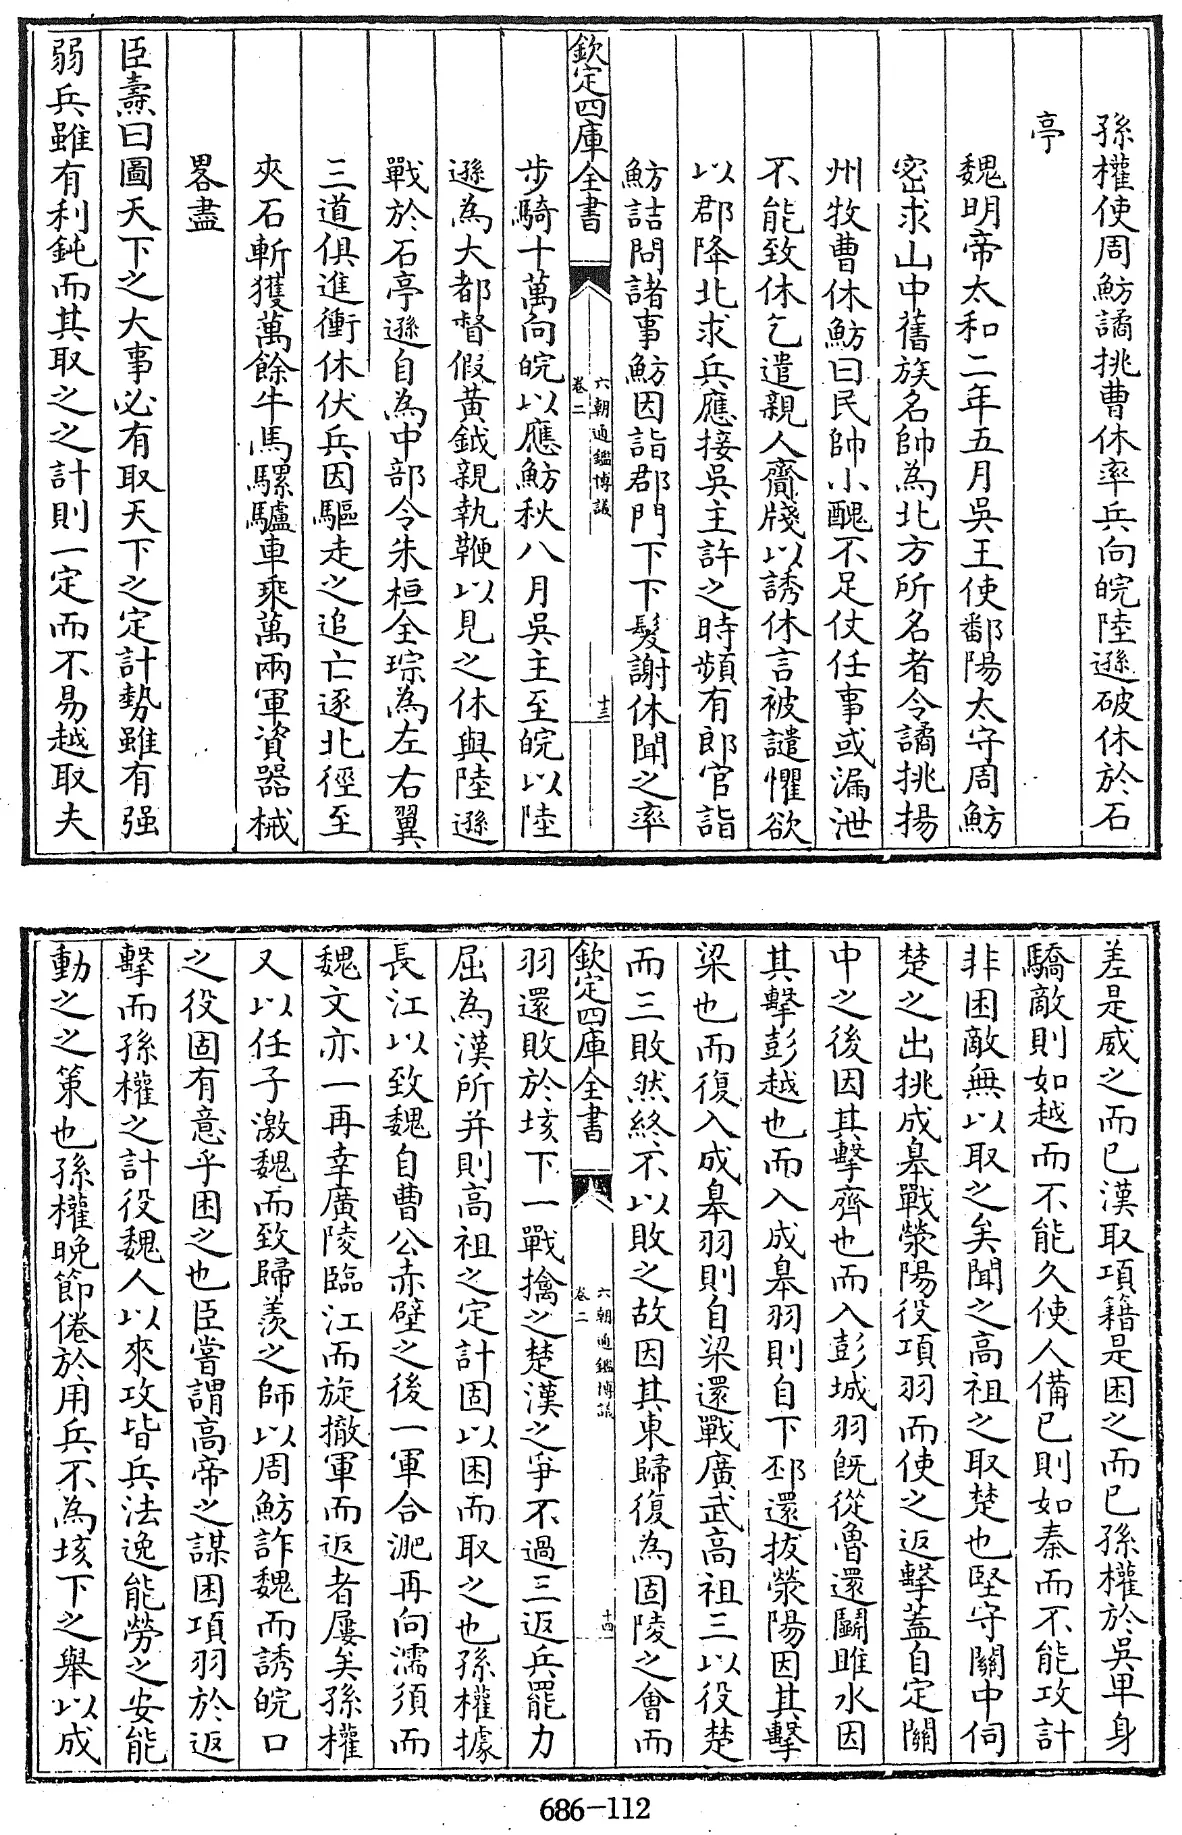 孫權使周魴譎挑曹休率兵向皖陸遜破休於石
亭
魏明帝太和二年五月吳王使鄱陽太守周魴
密求山中舊族名帥為北方所名者令譎挑揚
州牧曹休魴曰民帥小醜不足仗任事或漏泄
不能致休乞遣親人齎牋以誘休言被譴懼欲
以郡降北求兵應接吳主許之時頻有郎官詣
魴詰問諸事魴因詣郡門下下髮謝休聞之率
欽定四庫全書
六朝通鑑博議
卷二
十三
步騎十萬向皖以應魴秋八月吳主至皖以陸
遜為大都督假黃鉞親執鞭以見之休與陸遜
戰於石亭遜自為中部令朱桓全琮為左右翼
三道俱進衝休伏兵因驅走之追亡逐北徑至
夾石斬獲萬餘牛馬騾驢車乘萬兩軍資器械
畧盡
臣燾曰圖天下之大事必有取天下之定計勢雖有强
弱兵雖有利鈍而其取之之計則一定而不易越取夫
差是威之而已漢取項籍是困之而已孫權於吳卑身
驕敵則如越而不能久使人備已則如秦而不能攻計
非困敵無以取之矣聞之高祖之取楚也堅守關中伺
楚之出挑成皋戰滎陽役項羽而使之返擊蓋自定關
中之後因其擊齊也而入彭城羽既從魯還鬬睢水因
其擊彭越也而入成皋羽則自下邳還拔滎陽因其擊
梁也而復入成皋羽則自梁還戰廣武高祖三以役楚
而三敗然終不以敗之故因其東歸復為固陵之會而
欽定四庫全書
六朝通鑑博議
卷二
十四
羽還敗於垓下一戰擒之楚漢之爭不過三返兵罷力
屈為漢所并則高祖之定計固以困而取之也孫權據
長江以致魏自曹公赤壁之後一軍合淝再向濡須而
魏文亦一再幸廣陵臨江而旋撤軍而返者屢矣孫權
又以任子激魏而致歸羨之師以周魴詐魏而誘皖口
之役固有意乎困之也臣嘗謂高帝之謀困項羽於返
擊而孫權之計役魏人以來攻皆兵法逸能勞之安能
動之之策也孫權晚節倦於用兵不為垓下之舉以成
686-112